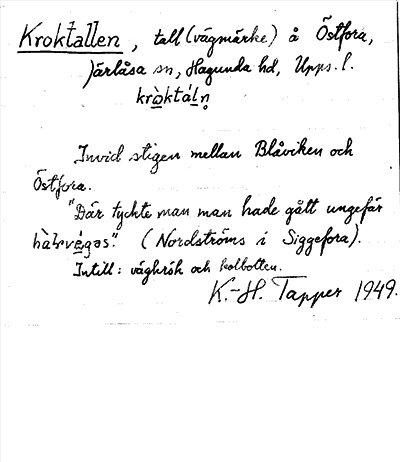 Kroktallen, tall (vägmärke) å Östfora,
Järlåsa sn, Hagunda hd, Upps. l.
kròktálṇ
Invid stigen mellan Blåviken och
Östfora.
"Där tyckte man man hade gått ungefär
hàlvvégəs." (Nordströms i Siggefora).
Intill: vägkrök och kolbotten.
K.-H. Tapper 1949.